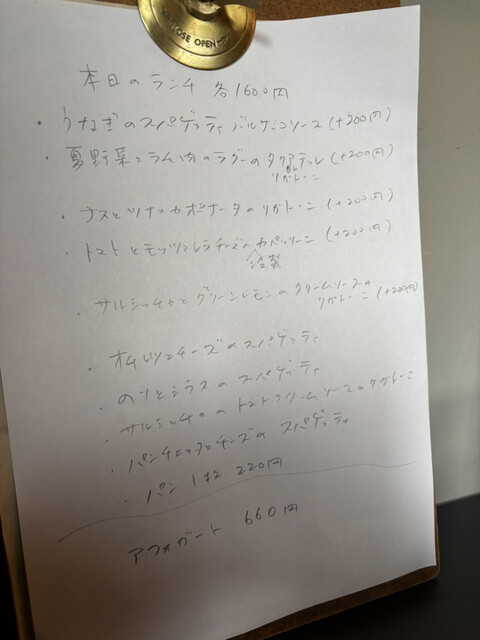 CLOSE OPEN
本日のランチ 各1600円
・うなぎのスパゲッティ バルサミコソース (+300円)
・夏野菜とラム肉のラグーのタリアテッレ (+200円)
or
リガトーニ
・ナスとツナのカポナータのリガトーニ (+200円)
・トマトとモッツァレラチーズのカペッリーニ (+200円)
冷製
・サルシッチャとグリーンレモンのクリームソースの
リガトーニ (+200円)
・チーズのスパゲッティ
・のりとシラスのスパゲッティ
・サルシッチャのトマトクリームソースのリガトーニ
・パンチェッタとチーズのスパゲッティ
・パン 1皿 220円
アフォガート 660円